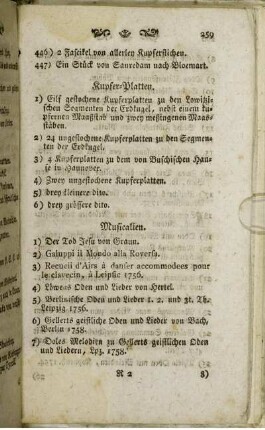 259
446) 2 Fascikel von allerley Kupferstichen.
447) Ein Stück von Sanredam nach Bloemart.
Kupfer-Platten.
1) Eilf gestochene Kupferplatten zu den Lowitzi-
schen Segmenten der Erdkugel, nebst einem ku-
pfernen Maaßstab und zwey messingenen Maas-
stäben.
2) 24 ungestochene Kupferplatten zu den Segmen-
ten der Erdkugel.
3) 4 Kupferplatten zu dem von Buschischen Hau-
se in Hannover.
4) Zwey ungestochene Kupferplatten.
5) drey kleinere dito.
6) drey grössere dito.
Musicalien.
1) Der Tod Jesu von Graun.
2) Galuppi il Mondo alla Roversa.
3) Recueil d'Airs à danser accommodees pour
le clavecin, à Leipsic 1756.
4) Löwens Oden und Lieder von Hertel.
5) Berlinische Oden und Lieder 1. 2. und 3t. Th.
Leipzig 1756.
6) Gellerts geistliche Oden und Lieder von Bach,
Berlin 1758.
7) Doles Melodien zu Gellerts geistlichen Oden
und Liedern, Lpz. 1758.
R 2
8)